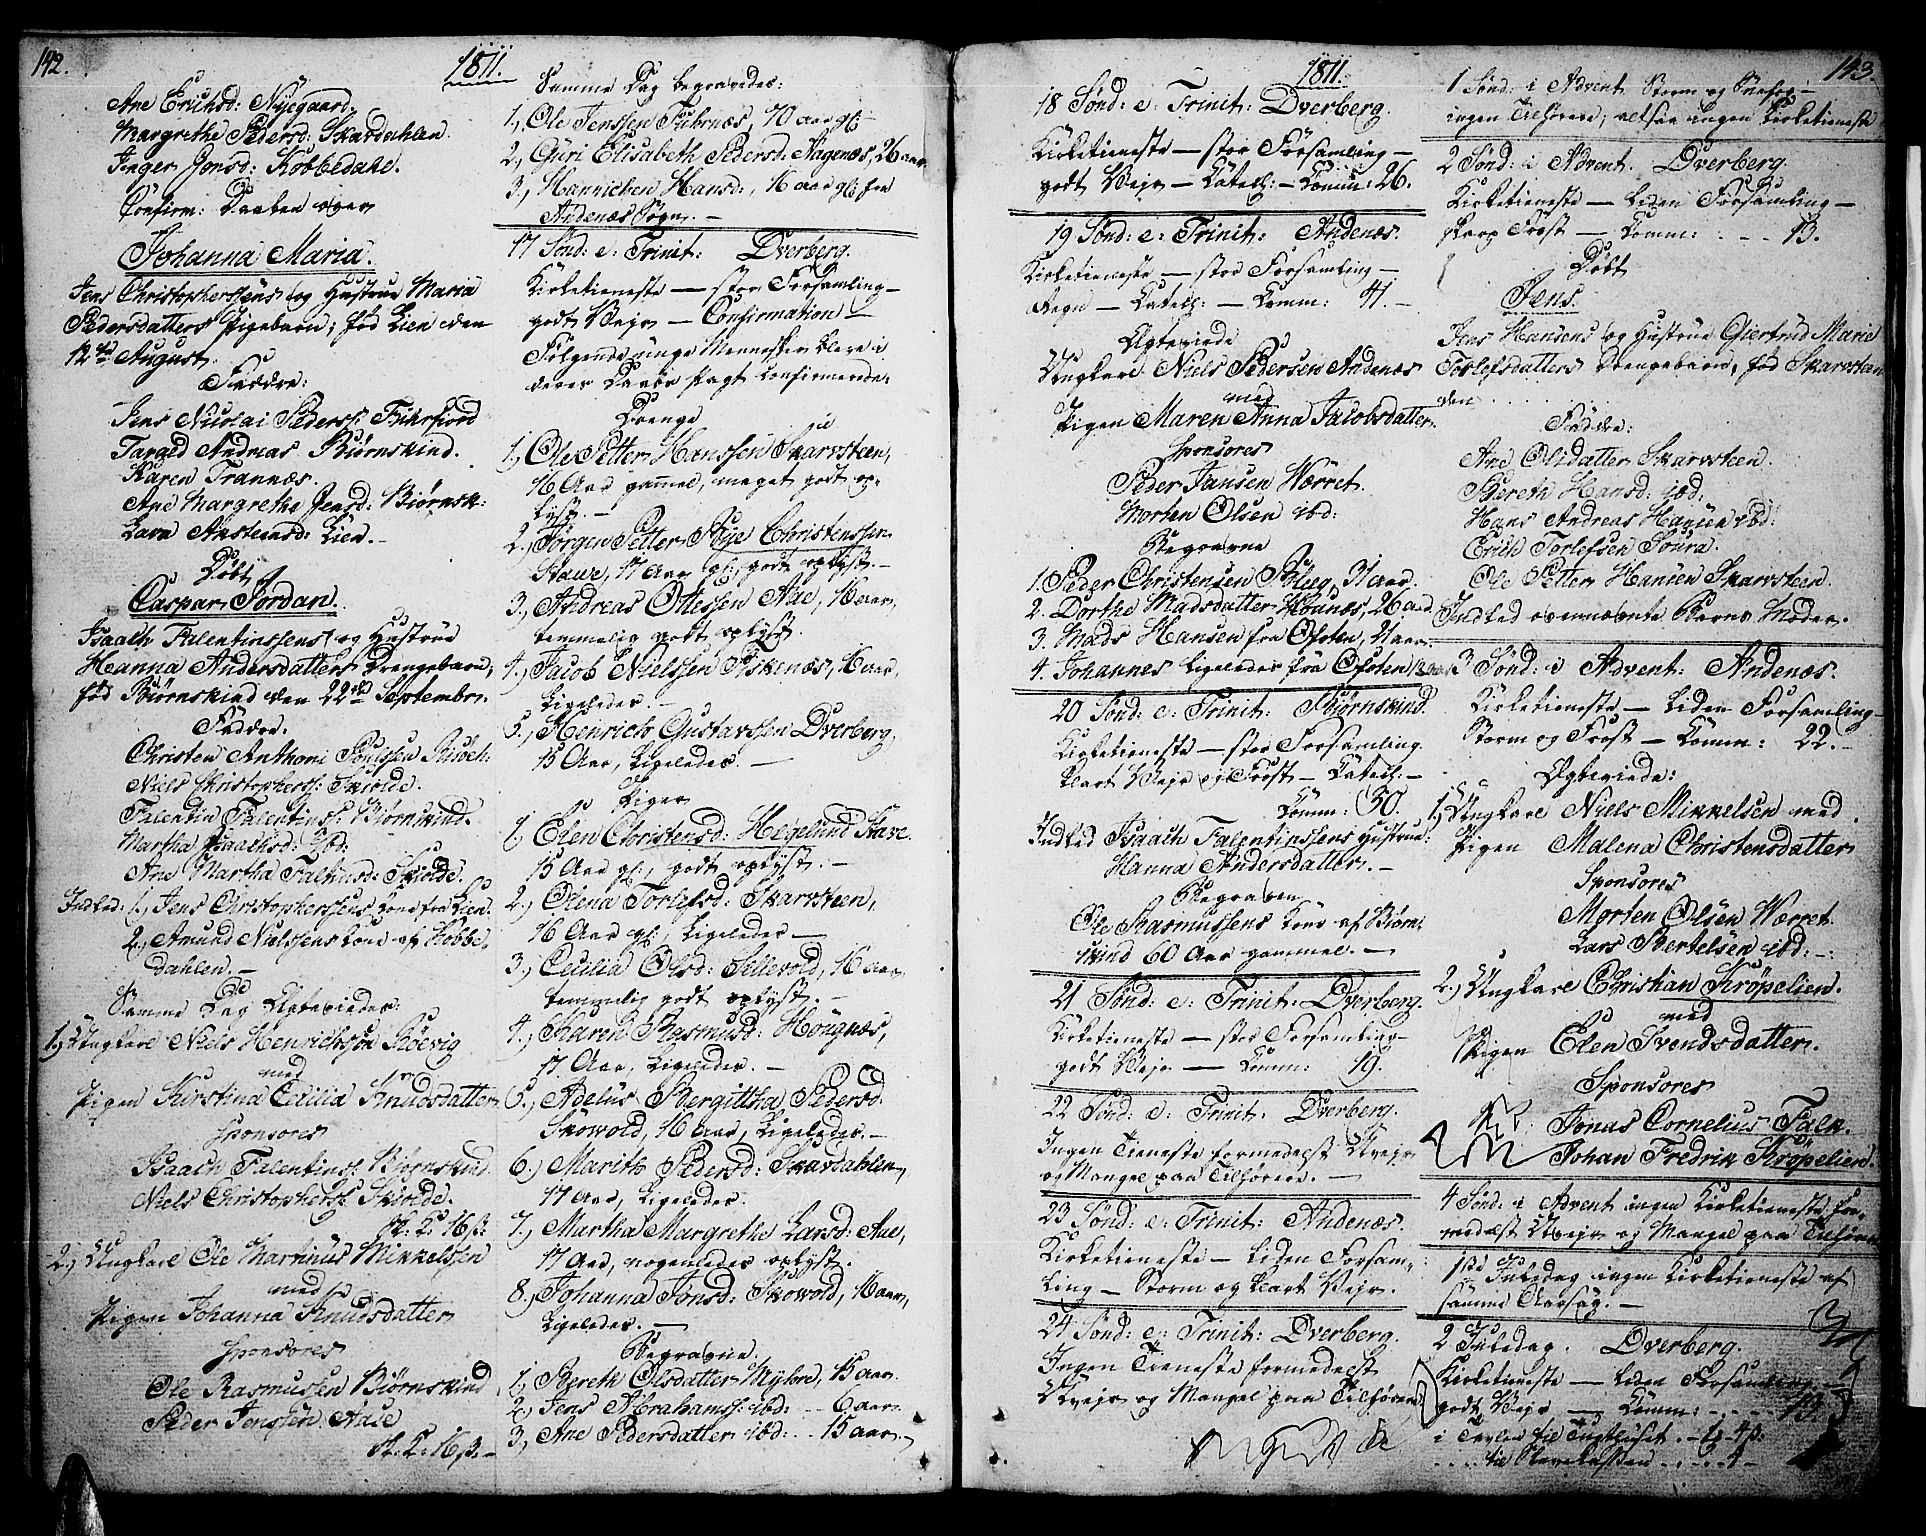 142.
1811.
Ane Erichsd: Nyegaard.
Margrethe Pedersd: Skardahlen.
Inger Jonsd: Kobbedahl.
Confirm: Daaben over
Johanna Maria.
Jens Christopherssens og Hustrue Maria
Pedersdatters Pigebarn, fød Lien den
12te August.
Faddre:
Jens Nicolai Pederss:
Andreas Biørnskind.
Karen Trannæs.
Ane Margrethe Jensd: Biørnsk:
Lava Anstensd: Lien.
Døbt
Caspar Jordan.
Isaach Falentinssens og Hustrue
Hanna Andersdatters Drengebarn,
fød Biørnskind den 22de September.
Faddre:
Christen Anthoni Poulssen
Niels Christopherss: Skiolde.
Falentin Falentinss: Biørnskind.
Martha Isaachsd: Ibd:
Ane Martha Falentinsd: Skiolde.
Indled: 1, Jens Christopherssens Kone fra Lien.
2, Amund Nielssens Kone af Kobbe,
dahlen.
Samme Dag Ægteviede:
1, Ungkarl Niels Henrichsøn Røevig
med
Pigen Kirstina Cecilia Knudsdatter
Sponsores
Isaach Falentinss: Biørnskind
Niels Christopherss: Skiolde.
2, Ungkarl Ole Martinus Mikkelssen
med
Pigen Johanna Knudsdatter
Sponsores
Ole Rasmusen Biørnskind
Peder Jenssen Aase
Samme Dag begravedes:
1, Ole Jenssen 70 aar gl:
2, Guri Elisabeth Pedersd: Aagenæs, 26 aar
3, Hannichen Hansd:, 16 aar gl: fra
Andenæs Sogn.
17 Sønd: e: Trinit: Dverberg.
Kirketieneste — stor Forsamling —
godt Vejr — Confirmation
Følgende unge Mennesker bleve i
deres Daabs Pagt Confirmerede:
Drenge
1, Ole Petter Hanssen Skarvsteen,
16 Aar gammel, meget godt op-
lyst.
2, Jørgen Petter Bye Christenssen
Stawe, 17 Aar gl:, godt oplyst.
3, Andreas Ottessen Aae, 16 aar,
temmelig godt oplyst.
4, Jacob Nielssen Fiskenæs, 16 aar,
Ligeledes.
5, Henrich Gustavssen Dverberg,
15 Aar, Ligeledes.
Piger
1, Elen Christensd: Hegelund Stave.
15 Aar gl:, godt oplyst.
2, Olena Torlefsd: Skarvsteen,
16 Aar gl:, Ligeledes
3, Cecilia Olsd: Sellevold, 16 aar,
temmelig godt oplyst.
4, Karen Rasmusd: Hougnæs,
17 Aar, Ligeledes.
5, Adelus Bergittha Pedersd:
Skowold, 16 Aar, Ligeledes.
6, Marith Pedersd: Skardahlen,
17 Aar, Ligeledes.
7, Martha Margrethe Larsd: Aae,
17 Aar, nogenledes oplyst.
8, Johanna Jonsd: Skowold, 16 aar,
Ligeledes.
Begravne.
1, Bereth Olsdatter Myhre, 15 aar.
2, Jens Abrahamss: ibd: 6 aar
3, Ane Pedersdatter ibd: 15 aar
1811.
18 Sønd: e: Trinit: Dverberg.
Kirketieneste — stor Forsamling —
godt Vejr — Catech: — Comm: 26.
19 Sønd: e: Trinit: Andenæs.
Kirketieneste — stor Forsamling —
Regn — Catech: — Comm: 41.
Ægteviede
Ungkarl Niels Pedersen Andenæs
med
Pigen Maren Anna Jacobsdatter
Sponsores
Peder Jansen Wærret.
Morten Olsen ibd:
Begravne
1. Peder Christensen Bleg, 31 aar.
2. Dorthe Madsdatter Hounæs, 26 aar
3. Mads Hansen fra Ofoten, 21 aar
4. Johannes Ligeledes fra Ofoten
20 Sønd: e: Trinit: Biørnskind
Kirketieneste — stor Forsamling
Klart Vejr og Frost — Catech: —
Comm: 50.
Indled Isaach Falentinssens Hustrue
Hanna Andersdatter.
Begraven
Ole Rasmussens Kone af Biørn,
skind 60 Aar gammel.
21 Sønd: e: Trinit: Dverberg.
Kirketieneste — stor Forsamling
godt Vejr — Comm: 19.
22 Sønd: e: Trinit: Dverberg.
Ingen Tieneste formedelst Uvejr
og Mangel paa Tilhørere.
23 Sønd: e: Trinit: Andenæs.
Kirketieneste — Liden Forsam,
ling — Storm og klart Vejr.
24 Sønd: e: Trinit: Dverberg.
Ingen Tieneste formedelst
Uvejr og Mangel paa Tilhørere
143.
1 Sønd: i Advent Storm og Snefog —
ingen Tilhørere, altsaa ingen Kirketieneste
2 Sønd: i Advent. Dverberg.
Kirketieneste — Liden Forsamling —
skarp Frost — Comm: 13.
Døbt
Jens.
Jens Hansens og Hustrue Giertrud Marie
Torlefsdatters Drengebarn, fød Skarvsteen
den
Faddre:
Ane Olsdatter Skarvsteen.
Bereth Hansd: ibd:
Hans Andreas Hansen ibd:
Erich Torlefsen Soura.
Ole Petter Hansen Skarvsteen.
Indled ovennævnte Barns Moder.
3 Sønd: i Advent: Andenæs.
Kirketieneste — Liden Forsamling
Storm og Frost — Comm: 22.
Ægteviede:
1, Ungkarl Niels Mikkelsen med
Pigen Malena Christensdatter
Sponsores
Morten Olsen Wærret
Lars Bertelsen ibd:
2, Ungkarl Christian Krøpelien.
med
Pigen Elen Svendsdatter.
Sponsores
Jonas Cornelius Falk.
Johan Fredrik Krøpelien.
4 Sønd: i Advent ingen Kirketieneste for-
medelst Uvejr og Mangel paa Tilhørere
1ste Juledag ingen Kirketieneste af
samme Aarsag.
2 Juledag. Dverberg.
Kirketieneste — liden Forsamling
godt Vejr — Comm: 13.
i Tavlen til Tugthuset
til Slavekassen